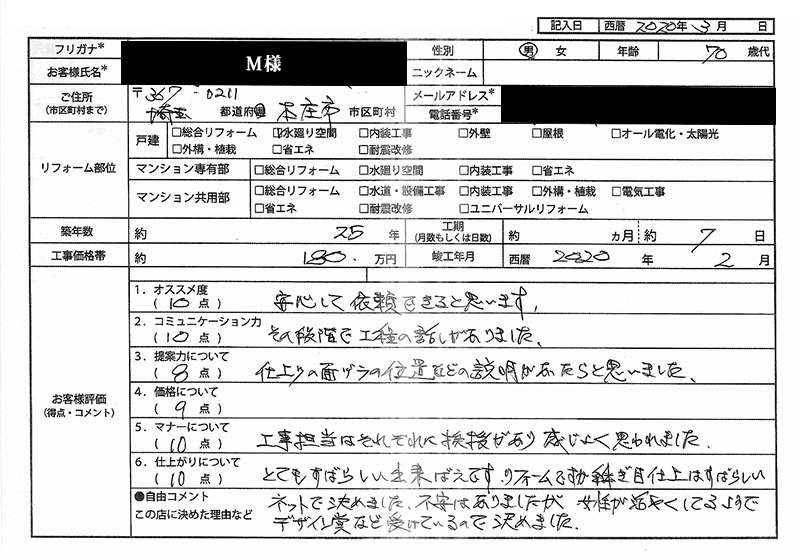 記入日 西暦 2020年 3月 日
フリガナ* 性別 男 女 年齢 70 歳代
お客様氏名* M様 ニックネーム
ご住所 (市区町村まで) 〒367-0211 メールアドレス*
埼玉 都道府県 本庄市 市区町村 電話番号*
リフォーム部位
戸建 □総合リフォーム □水廻り空間 □内装工事 □外壁 □屋根 □オール電化・太陽光
□外構・植栽 □省エネ □耐震改修
マンション専有部 □総合リフォーム □水廻り空間 □内装工事 □省エネ
マンション共用部 □総合リフォーム □水道・設備工事 □内装工事 □外構・植栽 □電気工事
□省エネ □耐震改修 □ユニバーサルリフォーム
築年数 約 25 年 工期 (月数もしくは日数) 約 カ月 約 7 日
工事価格帯 約 180. 万円 竣工年月 西暦 2020 年 2 月
お客様評価 (得点・コメント)
1．オススメ度 (10点) 安心して依頼できると思います。
2．コミュニケーション力 (10点) その段階で工種の話しがありました。
3．提案力について (8点) 仕上りの面ヅラの位置などの説明があったらと思いました。
4．価格について (9点)
5．マナーについて (10点) 工事担当はそれぞれに挨拶があり感じよく思われました。
6．仕上がりについて (10点) とてもすばらしい出来ばえです。リフォームですが継ぎ目仕上はすばらしい
●自由コメント この店に決めた理由など
ネットで決めました、不安はありましたが 女性が活やくしてるようで
デザイン賞など受けているので決めました。